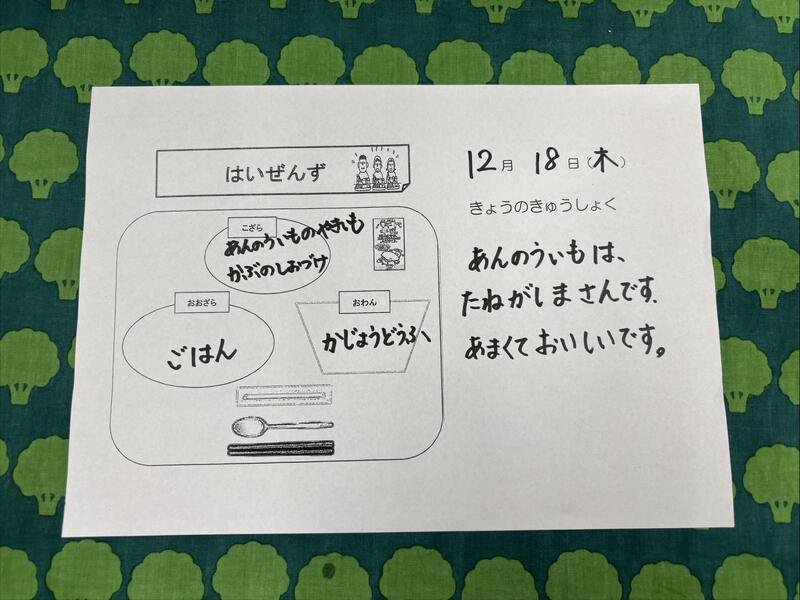 はいぜんず
こざら
あんのういものやきいも
かぶのしおづけ
おおざら
ごはん
おわん
かじょうどうふ
12月 18日(木)
きょうのきゅうしょく
あんのういもは、
たねがしまさんです.
あまくておいしいです。